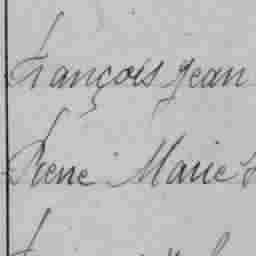 François Jean
Pierre Marie